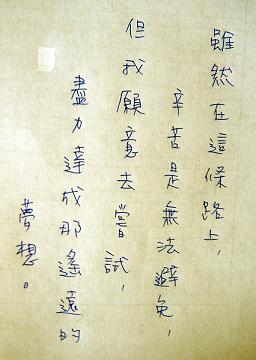 雖然在這條路上，
辛苦是無法避免，
但我願意去嘗試，
盡力達成那遙遠的
夢想。